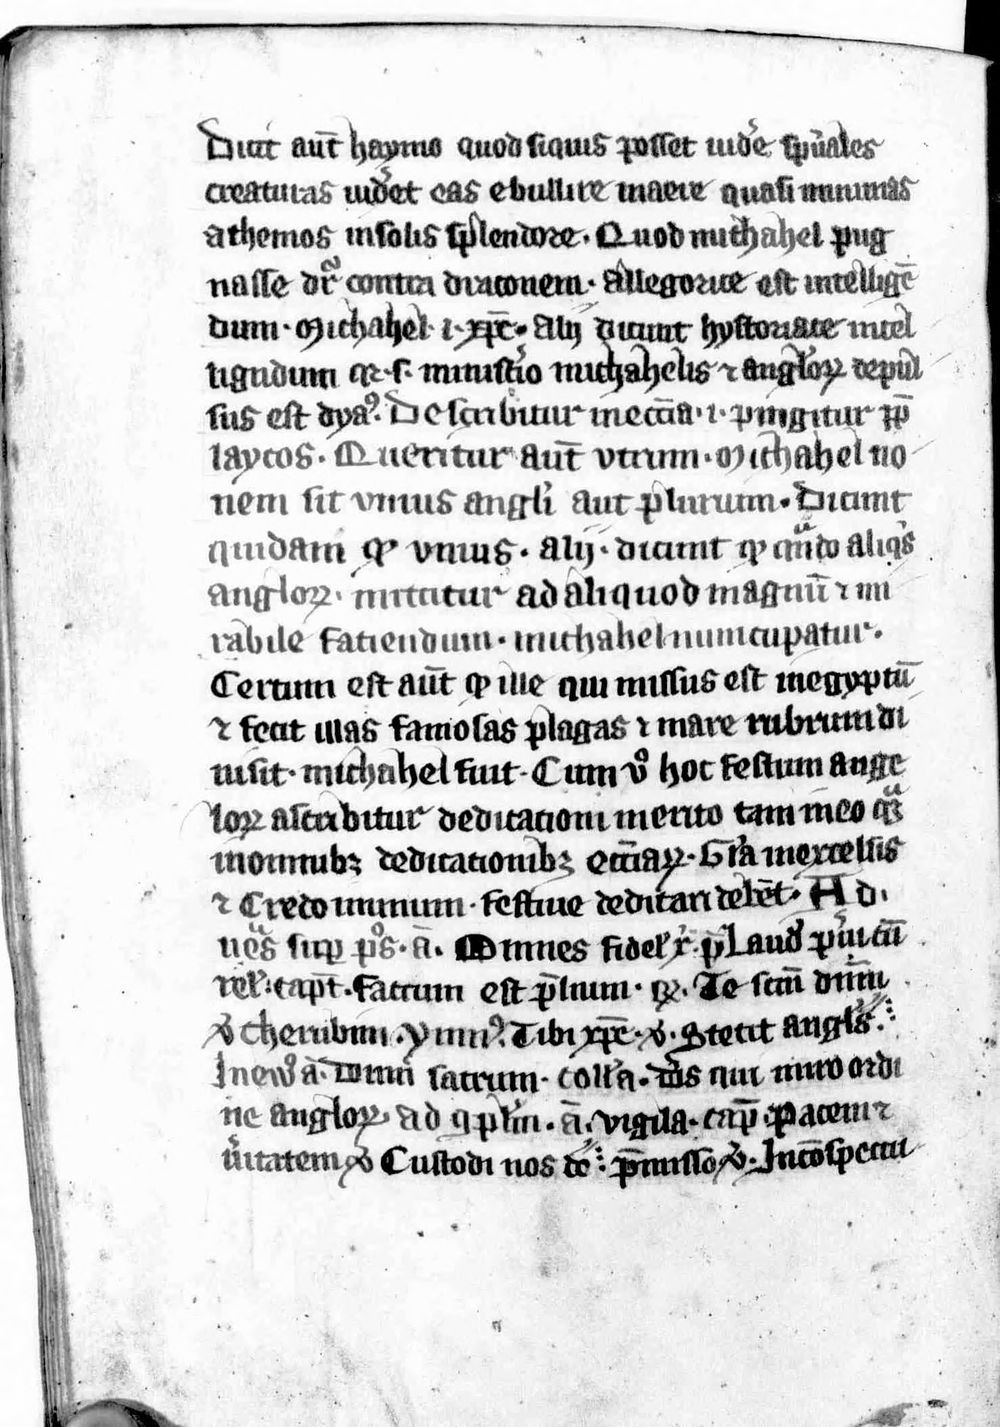 Dicit aut̄ haymo quod siquis posset uidͤe sp̄uales
creaturas uidͤet eas ebullire inaere quasi minimas
athemos insolis splendore. Quod michahel pug
nasse dr̄ contra draconem. allegorice est intelligē
dum. Michahel .i. xp̄c. alij dicunt hystoriace intel
ligendum qr .s. ministͥo michahelis ⁊ angloꝝ depul
sus est dyaꝰ. Describitur inecc̄ia .i. pingitur ꝓp̄
laycos. Queritur aut̄ vtrum. Michahel no
nem sit vnius angli aut plurium. Dicunt
quidam ꝙ vnius. alij. dicunt ꝙ qn̄do aliqͥs
angloꝝ. mittitur ad aliquod magnū ⁊ mi
rabile faciendum. michahel nuncupatur.
Certum est aut̄ ꝙ ille qui missus est inegyptū
⁊ fecit illas famosas plagas ⁊ mare rubrum di
uisit. michahel fuit. Cum vͦ hoc festum ange
loꝝ ascribitur dedicationi merito tam ineo qͣ̄
inomnibꝫ dedicationibꝫ ecc̄iaꝝ. Gl̄ia inexcelsis
⁊ Credo inunum. festiue dedicari debēt. Ad.
uēs sup pͦs. ā. Omnes fidel̕ x̄. p̄ Laud̕ pͥmi cū
rel̕. capt̄. Factum est p̄lium. ꝶ. Te scm̄ dn̄m
℣ cherubim. ymnꝰ. Tibi xp̄c. ℣. Stetit angl̕s.
Inew̄ ā. dum sacrum. coll̕a. Ds̄ qui miro ordi
ne angloꝝ. ad ꝯpl̕m. ā. vigila. cap̄. Pacem ⁊
ūitatem ℣ Custodi nos do᷒. p̄misso ℣. Incōspectu